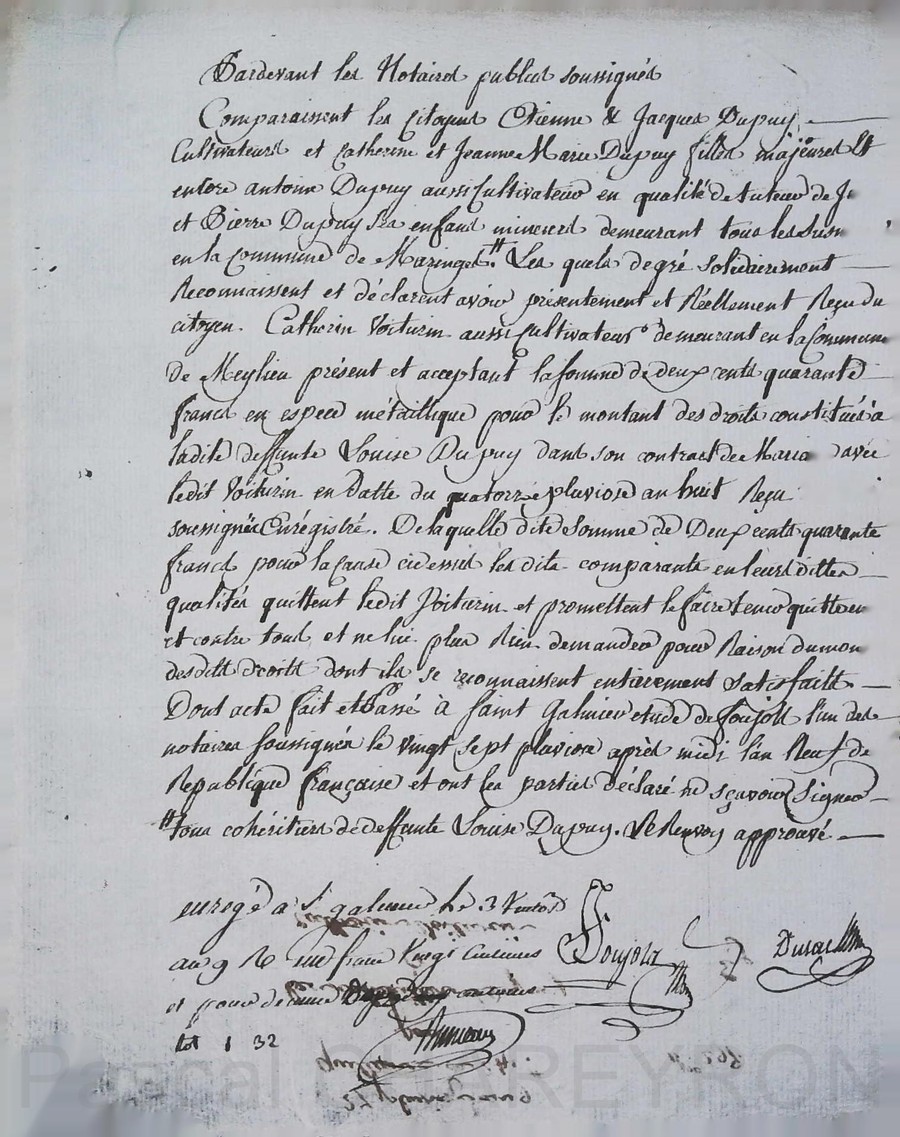 Pardevant les Notaires publics soussignés
Comparaissent les citoyens Etienne & Jacques Dupuy
Cultivateurs et Catherine et Jeanne Marie Dupuy filles majeures Et
entore antoine Dupuy aussi Cultivateur en qualité de tuteur de Je
et Pierre Dupuy ses enfans mineurs demeurant tous les Susn
en la Commune de Maringes. # Les quels de gré solidairement
Reconnaissent et déclarent avoir présentement et Réellement Reçu du
citoyen Catherin Voiturin aussi Cultivateur demeurant en la Commune
De Meylieu présent et acceptant la somme de deux cents quarante
francs en espece métallique pour le montant des droits constitués à
ladite deffunte Louise Dupuy dans son contract de Maria avec
ledit Voiturin en Datte du quatorze pluviose an huit Reçu
soussignés Enrégistré. De laquelle dite Somme de Deux cents quarante
francs pour la Cause cidessus les dits comparants en leurs dittes
qualités quittent ledit Voiturin et promettent le faire tenir quitte en
et contre tous et ne lui plus Rien demander pour Raison du mon
desdits droits dont ils se reconnaissent entierement satisfaits.
Dont acte fait et Passé à saint Galmier etude de Soujols l'un des
notaires soussignés le vingt sept pluviose après midi l'an Neuf de
Republique française et ont les parties déclaré ne sçavoir Signer
# tous cohéritiers de deffunte Louise Dupuy. Le Renvoy approuvé
enregé a St galmier le 3 Ventose
an 9 R un franc Vingt Centimes
et pour dixieme centimes
tot 1 32
Soujols
Pascal CHAREYRON